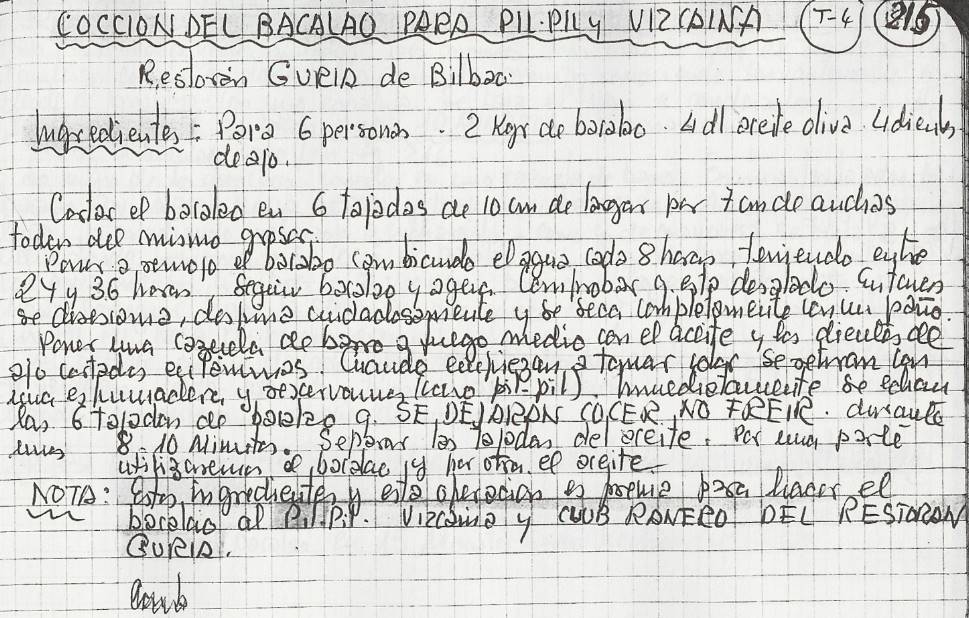 COCCION DEL BACALAO PARA PIL-PIL y VIZCAINA (T-4) 215
Restorán GURIA de Bilbao.
Ingredientes: Para 6 personas. 2 Kgr de bacalao. 4 dl aceite oliva. 4 dientes
de ajo.
Cortar el bacalao en 6 tajadas de 10 cm de largor por 7 cm de anchas
todas del mismo grosor.
Poner a remojo el bacalao cambiando el agua cada 8 horas, teniendo entre
24 y 36 horas según bacalao y agua. Comprobar q. esté desalado. Entonces
se desescama, despina cuidadosamente y se seca completamente con un paño.
Poner una cazuela de barro a fuego medio con el aceite y los dientes de
ajo cortados en láminas. Cuando empiezan a tomar color se retiran con
una espumadera y reservamos (caso pil-pil). Inmediatamente se echan
las 6 tajadas de bacalao q. SE DEJARAN COCER, NO FREIR. durante
unos 8-10 Minutos. Separar las tajadas del aceite. Por una parte
utilizaremos el bacalao, y por otra el aceite.
NOTA: Estos ingredientes y esta operacion es previa para hacer el
bacalao al Pil-Pil. Vizcaina y CLUB RANERO DEL RESTORAN
GURIA.